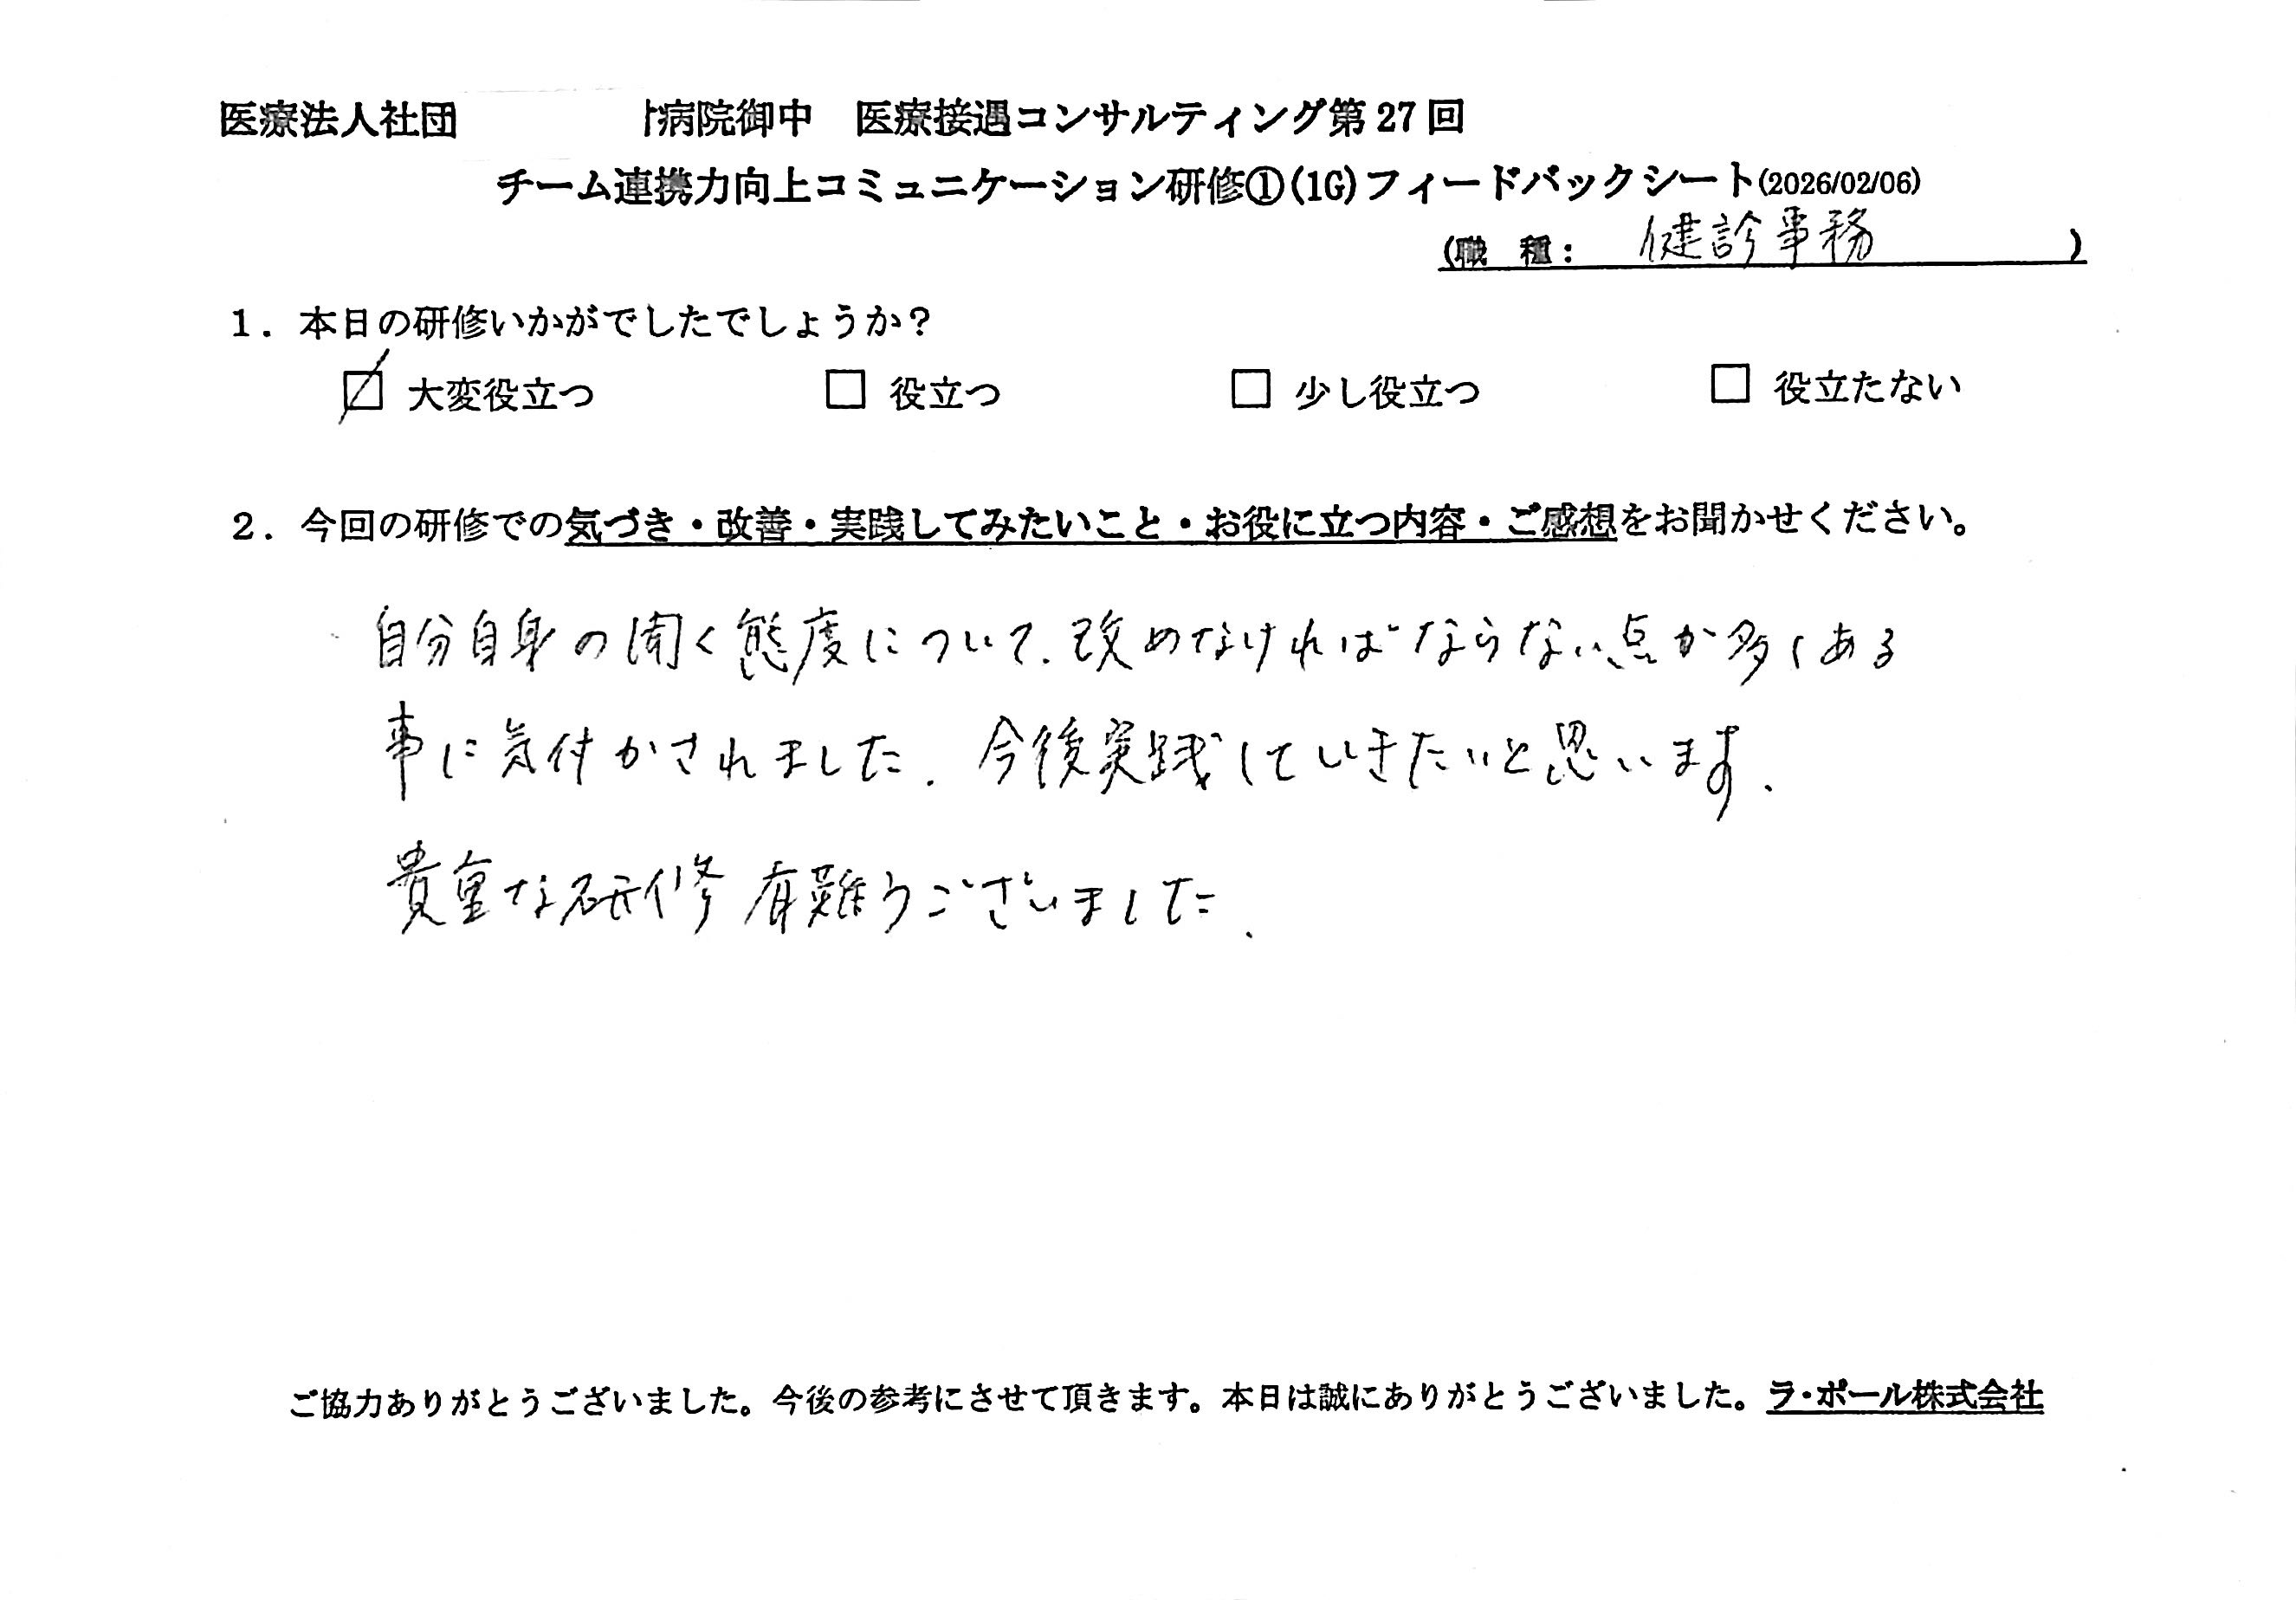 医療法人社団 病院御中 医療接遇コンサルティング第27回
チーム連携力向上コミュニケーション研修①(1G)フィードバックシート(2026/02/06)
(職 種： 健診事務 )
1．本日の研修いかがでしたでしょうか？
☑ 大変役立つ □ 役立つ □ 少し役立つ □ 役立たない
2．今回の研修での気づき・改善・実践してみたいこと・お役に立つ内容・ご感想をお聞かせください。
自分自身の聞く態度について、改めなければならない点が多くある
事に気付かされました。今後実践していきたいと思います。
貴重な研修有難うございました。
ご協力ありがとうございました。今後の参考にさせて頂きます。本日は誠にありがとうございました。ラ・ポール株式会社